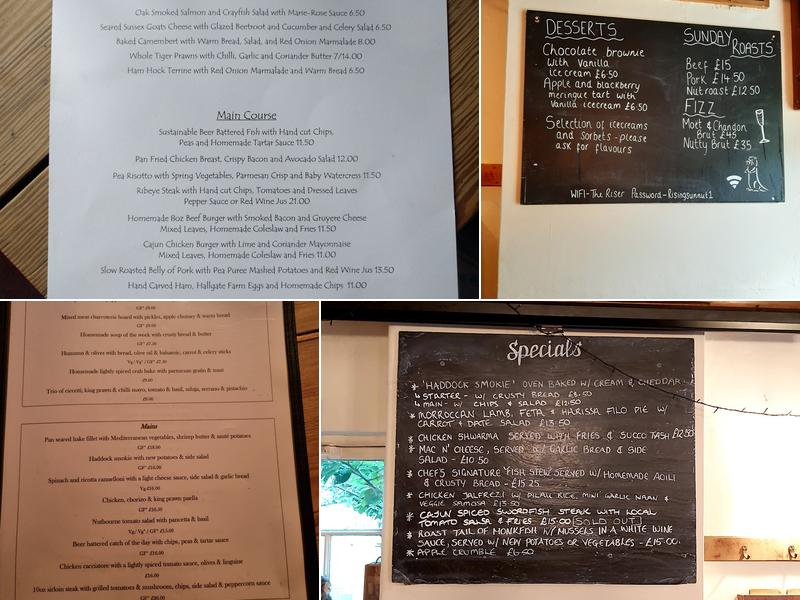 Oak Smoked Salmon and Crayfish Salad with Marie-Rose Sauce 6.50
Seared Sussex Goats Cheese with Glazed Beetroot and Cucumber and Celery Salad 6.50
Baked Camembert with Warm Bread, Salad, and Red Onion Marmalade 8.00
Whole Tiger Prawns with Chilli, Garlic and Coriander Butter 7/14.00
Ham Hock Terrine with Red Onion Marmalade and Warm Bread 6.50
Main Course
Sustainable Beer Battered Fish with Hand cut Chips,
Peas and Homemade Tartar Sauce 11.50
Pan Fried Chicken Breast, Crispy Bacon and Avocado Salad 12.00
Pea Risotto with Spring Vegetables, Parmesan Crisp and Baby Watercress 11.50
Ribeye Steak with Hand cut Chips, Tomatoes and Dressed Leaves
Pepper Sauce or Red Wine Jus 21.00
Homemade 8oz Beef Burger with Smoked Bacon and Gruyere Cheese
Mixed Leaves, Homemade Coleslaw and Fries 11.50
Cajun Chicken Burger with Lime and Coriander Mayonnaise
Mixed Leaves, Homemade Coleslaw and Fries 11.00
Slow Roasted Belly of Pork with Pea Puree Mashed Potatoes and Red Wine Jus 13.50
Hand Carved Ham, Hallgate Farm Eggs and Homemade Chips 11.00
DESSERTS
Chocolate brownie
with Vanilla
ice cream £6.50
Apple and blackberry
meringue tart with
Vanilla icecream £6.50
Selection of icecreams
and sorbets - please
ask for flavours
SUNDAY
ROASTS
Beef £15
Pork £14.50
Nutroast £12.50
FIZZ
Moet & Chandon
Brut £45
Nutty Brut £35
WIFI-The Riser Password-Risingsunnut1
Mixed meat charcuterie board with pickles, apple chutney & warm bread
Homemade soup of the week with crusty bread & butter
Hummus & olives with bread, olive oil & balsamic, carrot & celery sticks
Homemade lightly spiced crab bake with parmesan gratin & toast
£9.00
Trio of ciccetti; king prawn & chilli mayo, tomato & basil, salsa, serrano & pistachio
£9.00
Mains
Pan seared hake fillet with Mediterranean vegetables, shrimp butter & sauté potatoes
Haddock smokie with new potatoes & side salad
Spinach and ricotta cannelloni with a light cheese sauce, side salad & garlic bread
Chicken, chorizo & king prawn paella
Nutbourne tomato salad with pancetta & basil
Beer battered catch of the day with chips, peas & tartare sauce
Chicken cacciatore with a lightly spiced tomato sauce, olives & linguine
£16.00
10oz sirloin steak with grilled tomatoes & mushroom, chips, side salad & peppercorn sauce
Specials
* 'HADDOCK SMOKIE' OVEN BAKED W/ CREAM & CHEDDAR
STARTER - W/ CRUSTY BREAD £8.50
MAIN - W/ CHIPS & SALAD £12.50
* MORROCCAN LAMB, FETA & HARISSA FILO PIE W/
CARROT & DATE SALAD £13.50
* CHICKEN SHWARMA SERVED WITH FRIES & SUCCO TASH £12.50
* MAC N' CHEESE, SERVED W/ GARLIC BREAD & SIDE
SALAD - £10.50
* CHEFS SIGNATURE 'FISH STEW' SERVED W/ HOMEMADE AOILI
& CRUSTY BREAD - £15.25
* CHICKEN JALFREZI W/ PILAU RICE, MINI GARLIC NAAN &
VEGGIE SAMOSA £13.50
* CAJUN SPICED SWORDFISH STEAK WITH LOCAL
TOMATO SALSA & FRIES - £15.00 (SOLD OUT)
* ROAST TAIL OF MONKFISH W/ MUSSELS IN A WHITE WINE
SAUCE, SERVED W/ NEW POTATOES OR VEGETABLES - £15.00
* APPLE CRUMBLE £6.50